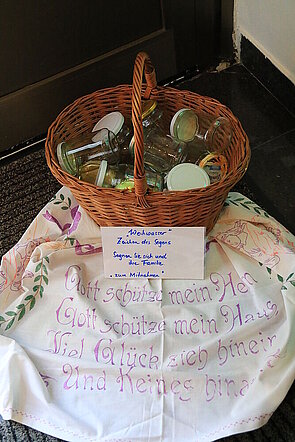 "Weihwasser"
Zeichen des Segens
Segnen Sie sich und
ihre Familie
"zum Mitnehmen"
Gott schütze mein Hei
Gott schütze mein Haus
Viel Glück zieh hinein
Und Keines hina